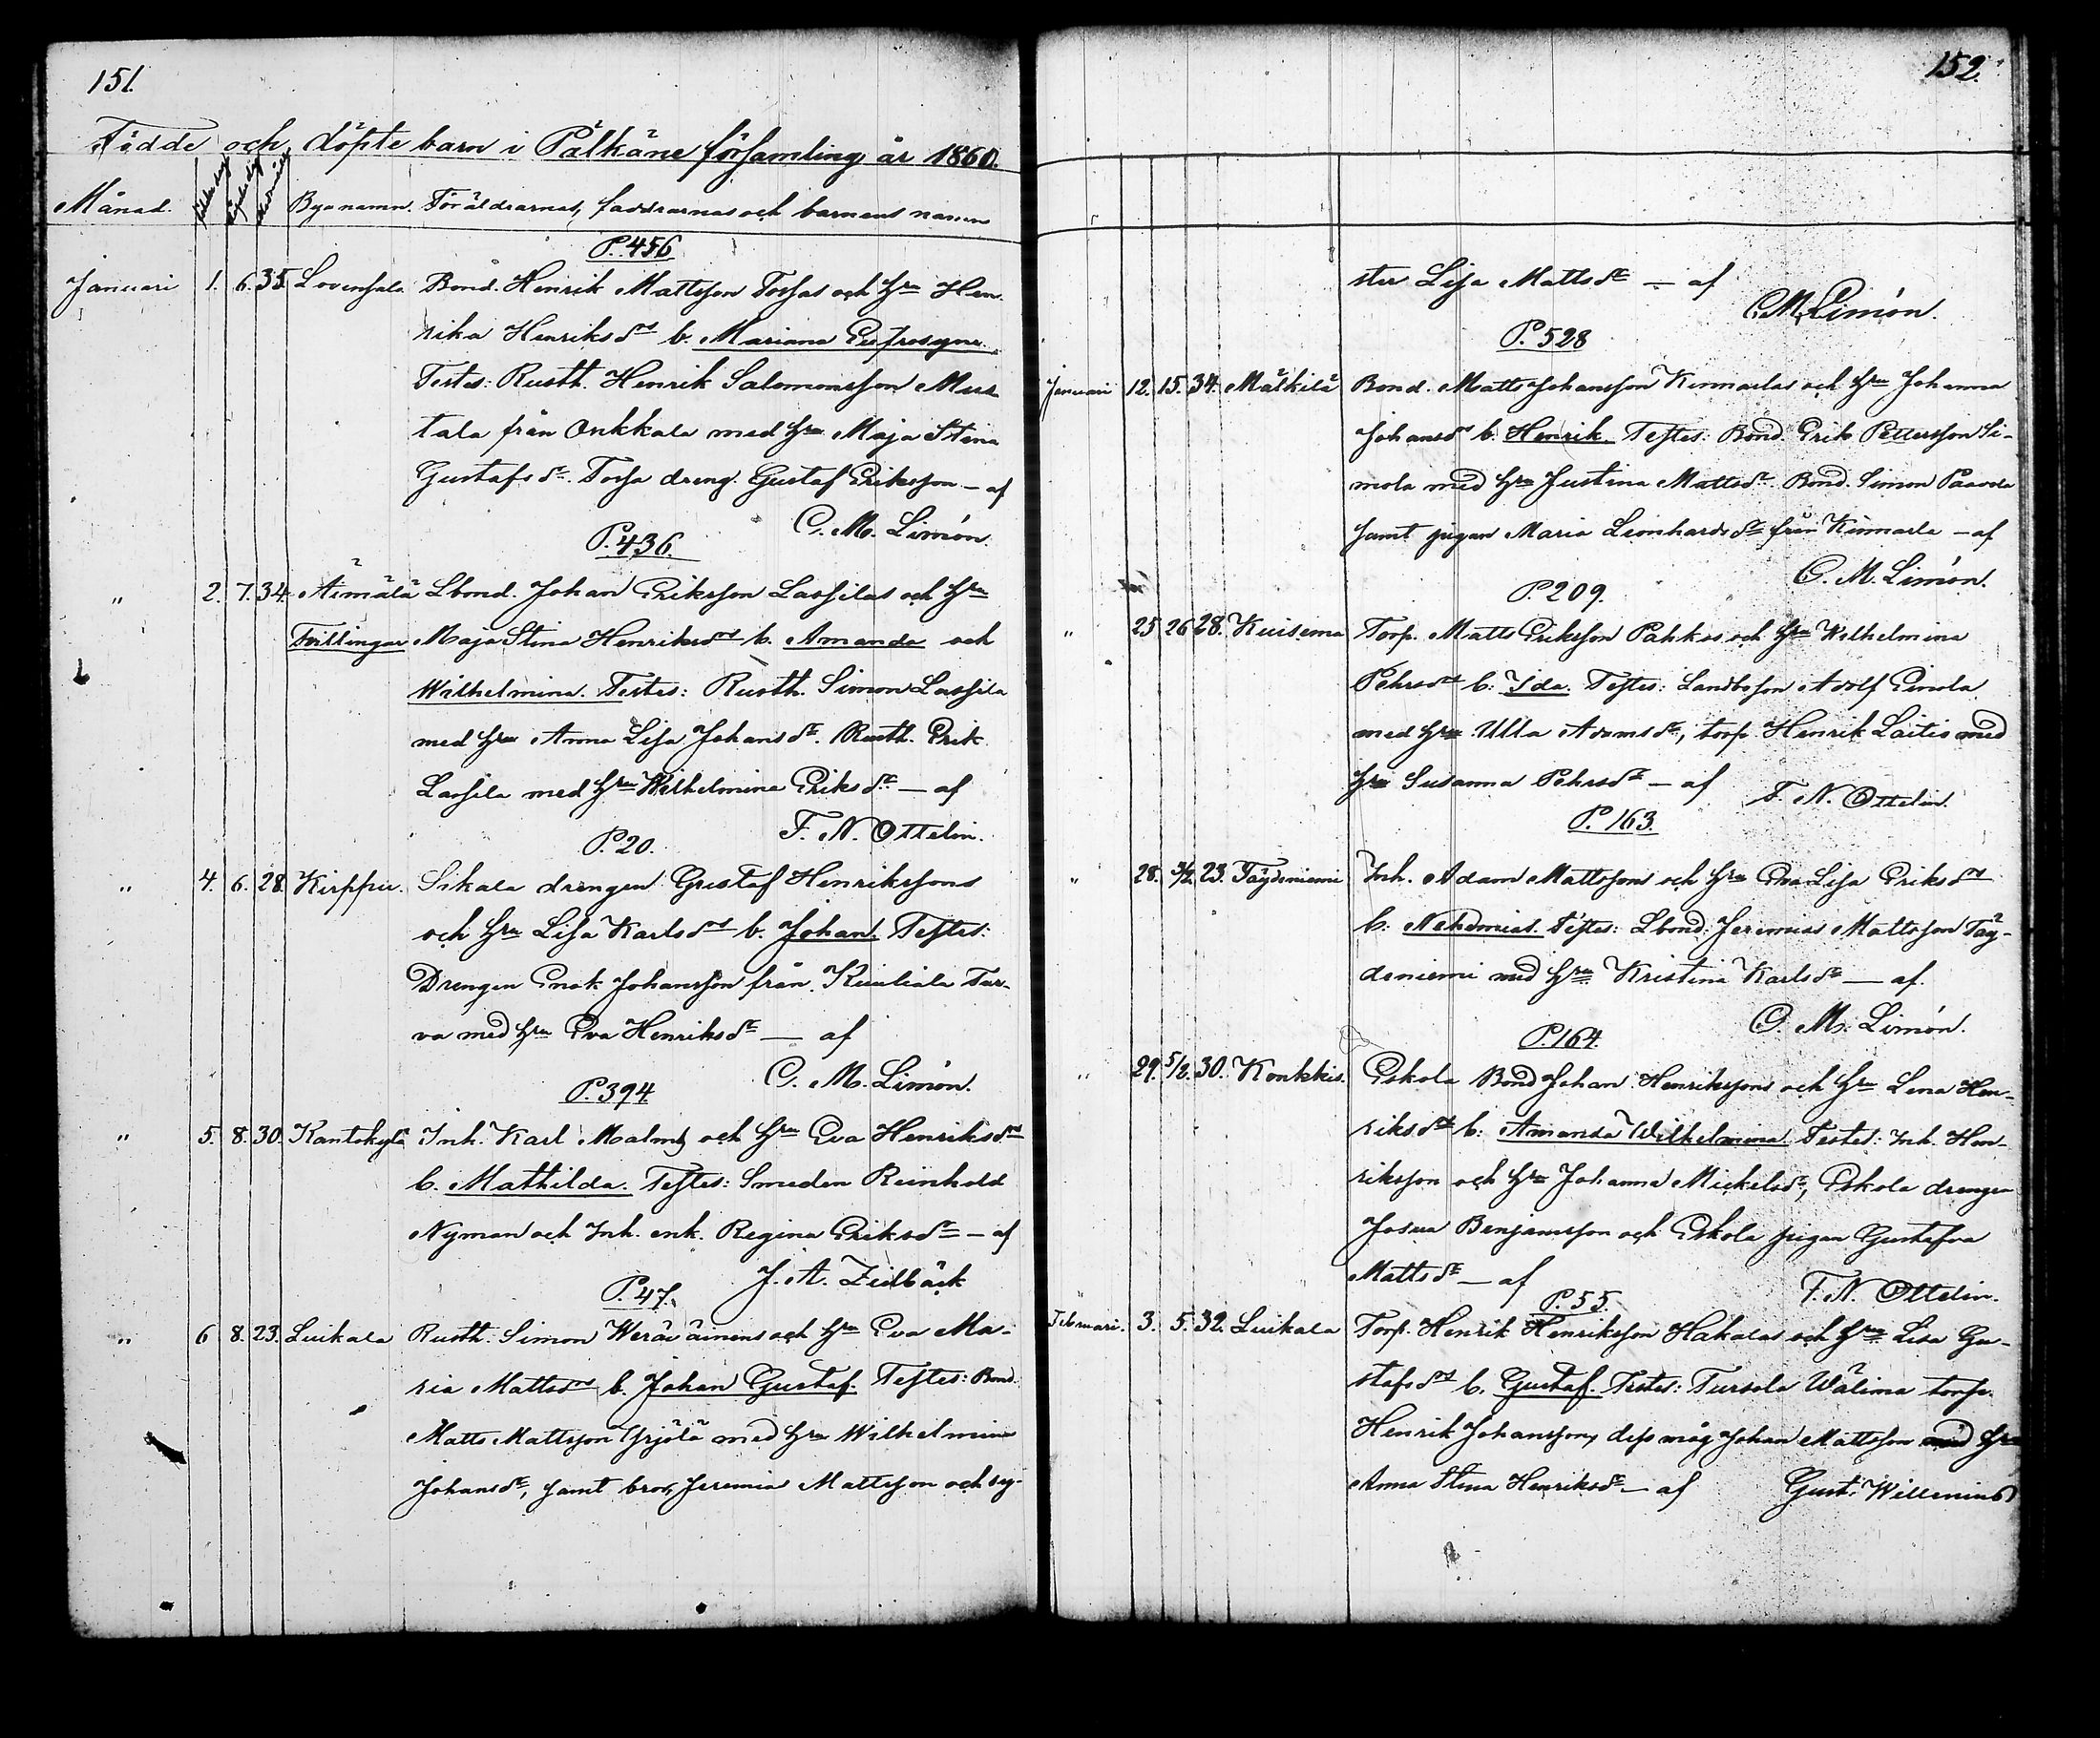 151.
Födde och döpte barn i Pälkäne församling år 1860.
Månad. Byanamn. Föräldrarnas, faddrarnas och barnens namn
P. 456
Januari 1. 6. 35. Lovensala Bond. Henrik Mattsson Tossas och hru Hen-
rika Henriksdrs b. Mariana Eufrosyne.
Testes: Rusth. Henrik Salomonsson Mus-
tala från Onkkala med hru Maja Stina
Gustafsdr. Tossa dreng. Gustaf Eriksson — af
C. M. Limón.
P. 436.
" 2. 7. 34. Äimälä Lbond. Johan Eriksson Lassilas och hru
Tvillingar Maja Stina Henriksdrs b. Amanda och
Wilhelmina. Testes: Rusth. Simon Lassila
med hru Anna Lisa Johansdr. Rusth. Erik
Lassila med hru Wilhelmina Eriksdr — af
F. N. Ottelin.
P. 20.
" 4. 6. 28. Kirppu. Sikala drengen Gustaf Henrikssons
och hru Lisa Karlsdrs b. Johan. Testes:
Drengen Enok Johansson från Kuuliala Tur-
va med hru Eva Henriksdr — af
C. M. Limón.
P. 394
" 5. 8. 30. Kantokylä Inh. Karl Malms och hru Eva Henriksdrs
b. Mathilda. Testes: Smeden Reinhold
Nyman och Inh. enk. Regina Eriksdr — af
J. A. Zidbäck
P. 47.
" 6 8. 23. Luikala Rusth. Simon Weräväinens och hru Eva Ma-
ria Mattsdrs b. Johan Gustaf. Testes: Bond.
Matts Mattsson Yrjölä med hru Wilhelmina
Johansdr, samt bror Jeremia Mattsson och sy-
152.
ster Lisa Mattsdr — af
C. M. Limón.
P. 528
Januari 12. 15. 34. Mälkilä Bond. Matts Johansson Kinnarlas och hru Johanna
Johansdrs b. Henrik. Testes: Bond. Erik Pettersson Si-
mola med hru Justina Mattsdr. Bond. Simon Paavola
samt pigan Maria Leonhardsdr från Kinnarla — af
C. M. Limón.
P. 209.
" 25 26 28. Kuisema Torp. Matts Eriksson Pahkas och hru Wilhelmina
Pehrsdrs b. Ida. Testes: Landbsson Adolf Einola
med hru Ulla Adamsdr, torp. Henrik Laitis med
hru Susanna Pehrsdr — af
F. N. Ottelin.
P. 163.
" 28. 3/2. 23. Täydeniemi Inh. Adam Mattssons och hru Eva Lisa Eriksdrs
b. Nehemias. Testes: Lbond. Jeremias Mattsson Täy-
deniemi med hru Kristina Karlsdr — af.
C. M. Limón.
P. 164.
" 29. 5/2. 30. Konkkis. Eskola Bond Johan Henrikssons och hru Lena Hen-
riksdrs b. Amanda Wilhelmina. Testes: Inh. Hen-
riksson och hru Johanna Mickelsdr, Eskola drengen
Josua Benjamsson och Eskola pigan Gustafva
Mattsdr — af
F. N. Ottelin.
P. 55.
Februari. 3. 5. 32. Luikala Torp. Henrik Henriksson Hakalas och hru Lisa Gu-
stafsdrs b. Gustaf. Testes: Tursola Wälimä torp.
Henrik Johansson, dess måg Johan Mattsson med hru
Anna Stina Henriksdr — af
Gust. Willenius